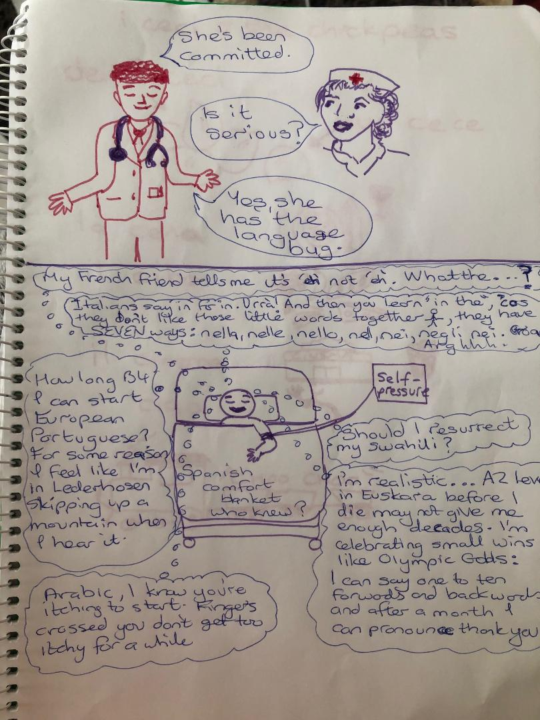 She's been
committed.
Is it
serious?
Yes, she
has the
language
bug.
My French friend tells me it's 'ch' not 'ch'. What the...?
Italians say 'in' for in. Urra! And then you learn 'in the' 'cos
they don't like those little words together, they have
SEVEN ways: nella, nelle, nello, nel, nei, negli nei.
Arghhh.
How long B4
I can start
European
Portuguese?
For some reason
I feel like I'm
in Lederhosen
skipping up a
mountain when
I hear it.
Self-
pressure
Spanish
comfort
blanket
who knew?
Should I resurrect
my Swahili?
I'm realistic... A2 Leve
in Euskara before I
die may not give me
enough decades. I'm
celebrating small wins
like Olympic Gods:
I can say one to ten
forwards and backwards
and after a month I
can pronounce thank you
Arabic, I know you're
itching to start. Fingers
crossed you don't get too
itchy for a while